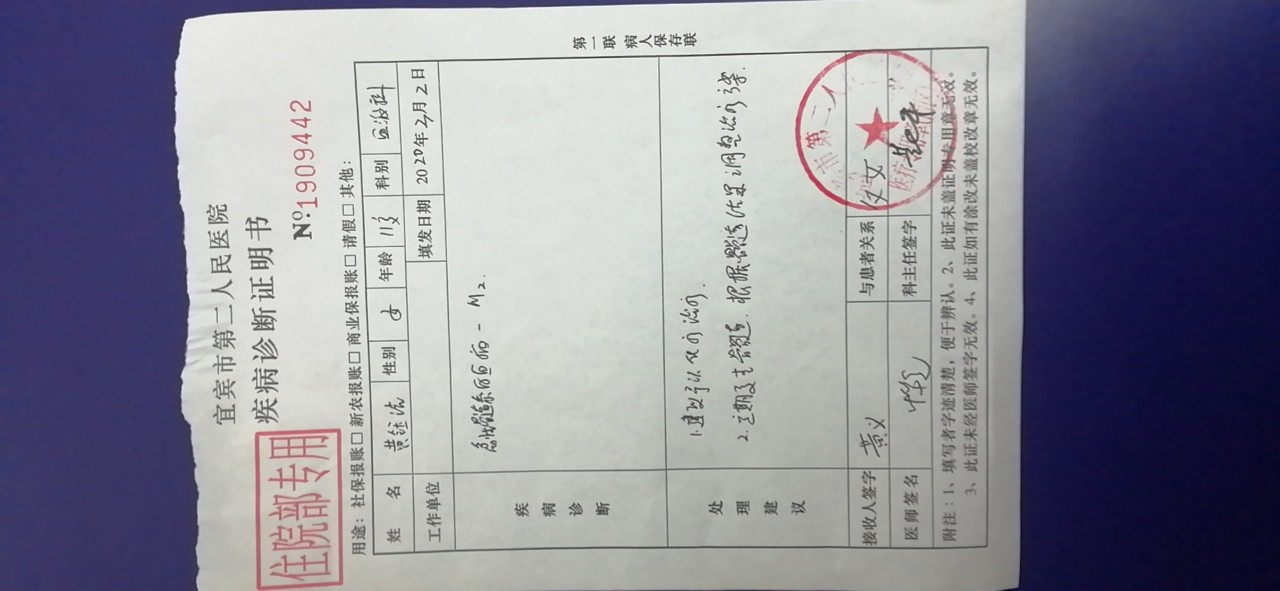 宜宾市第二人民医院
疾病诊断证明书
住院部专用
Nº:1909442
用途：社保报账□ 新农报账□ 商业保报账□ 请假□ 其他：
姓 名 黄钰沈 性别 女 年龄 11岁 科别 血液科
工作单位 填发日期 2020年3月2日
疾病诊断
急性髓系白血病-M2.
处理建议
1.建议予以化疗治疗.
2.定期复查骨髓,根据骨髓结果调整治疗方案.
接收人签字 黄义 与患者关系 父女
医师签名 科主任签字
附注：1、填写者字迹清楚，便于辨认。2、此证未盖证明专用章无效。
3、此证未经医师签字无效。4、此证如有涂改未盖校改章无效。
第一联 病人保存联
市第二人
医疗